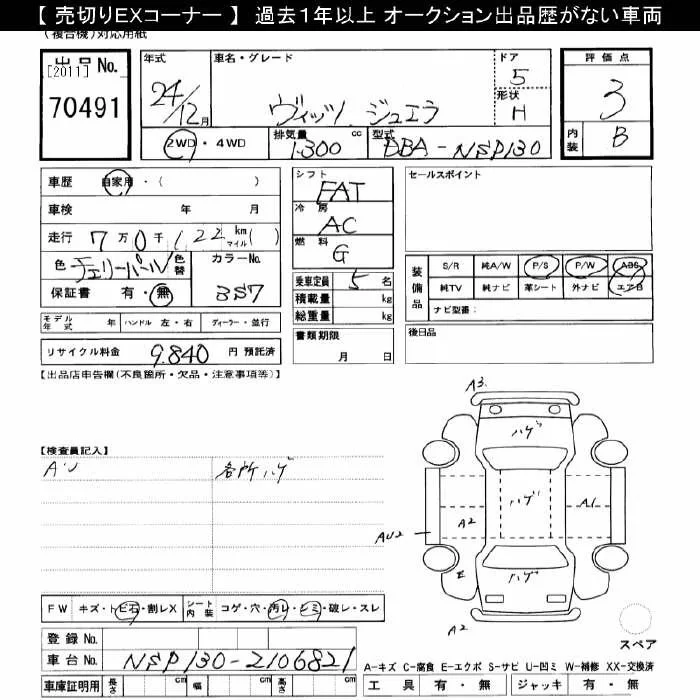 【 売切りEXコーナー 】 過去1年以上 オークション出品歴がない車両
(複合機)対応用紙
出品 No. [2011]
70491
年式 24/12月
車名・グレード ヴィッツ ジュエラ
ドア 5
形状 H
2WD・4WD
排気量 1300 cc
型式 DBA-NSP130
評価点 3
内装 B
車歴 自家用・( )
車検 年 月
走行 7万0千122 km マイル( )
色 チェリーパール 色替 カラーNo. 3S7
保証書 有・無
シフト FAT
冷房 AC
燃料 G
乗車定員 5 名
積載量 kg
総重量 kg
セールスポイント
装備品 S/R 純A/W P/S P/W ABS
純TV 純ナビ 革シート 外ナビ エアB
ナビ型番:
モデル年式 年 ハンドル 左・右 ディーラー・並行
リサイクル料金 9,840 円 預託済
書類期限 月 日
後日品
【出品店申告欄(不良箇所・欠品・注意事項等)】
【検査員記入】
AU 各所ハゲ
A3
ハゲ
ハゲ
A2 A1
AU2
E ハゲ
A2
スペア
FW キズ・トビ石・割レX シート内装 コゲ・穴・汚レ・シミ・破レ・スレ
登録 No.
車台 No. NSP130-2106821
A-キズ C-腐食 E-エクボ S-サビ U-凹ミ W-補修 XX-交換済
車庫証明用 長さ cm 幅 cm 高さ cm
工具 有・無 ジャッキ 有・無